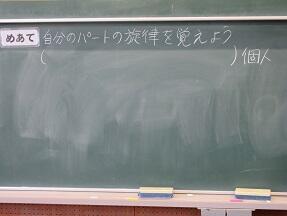 めあて 自分のパートの旋律を覚えよう
( )個人